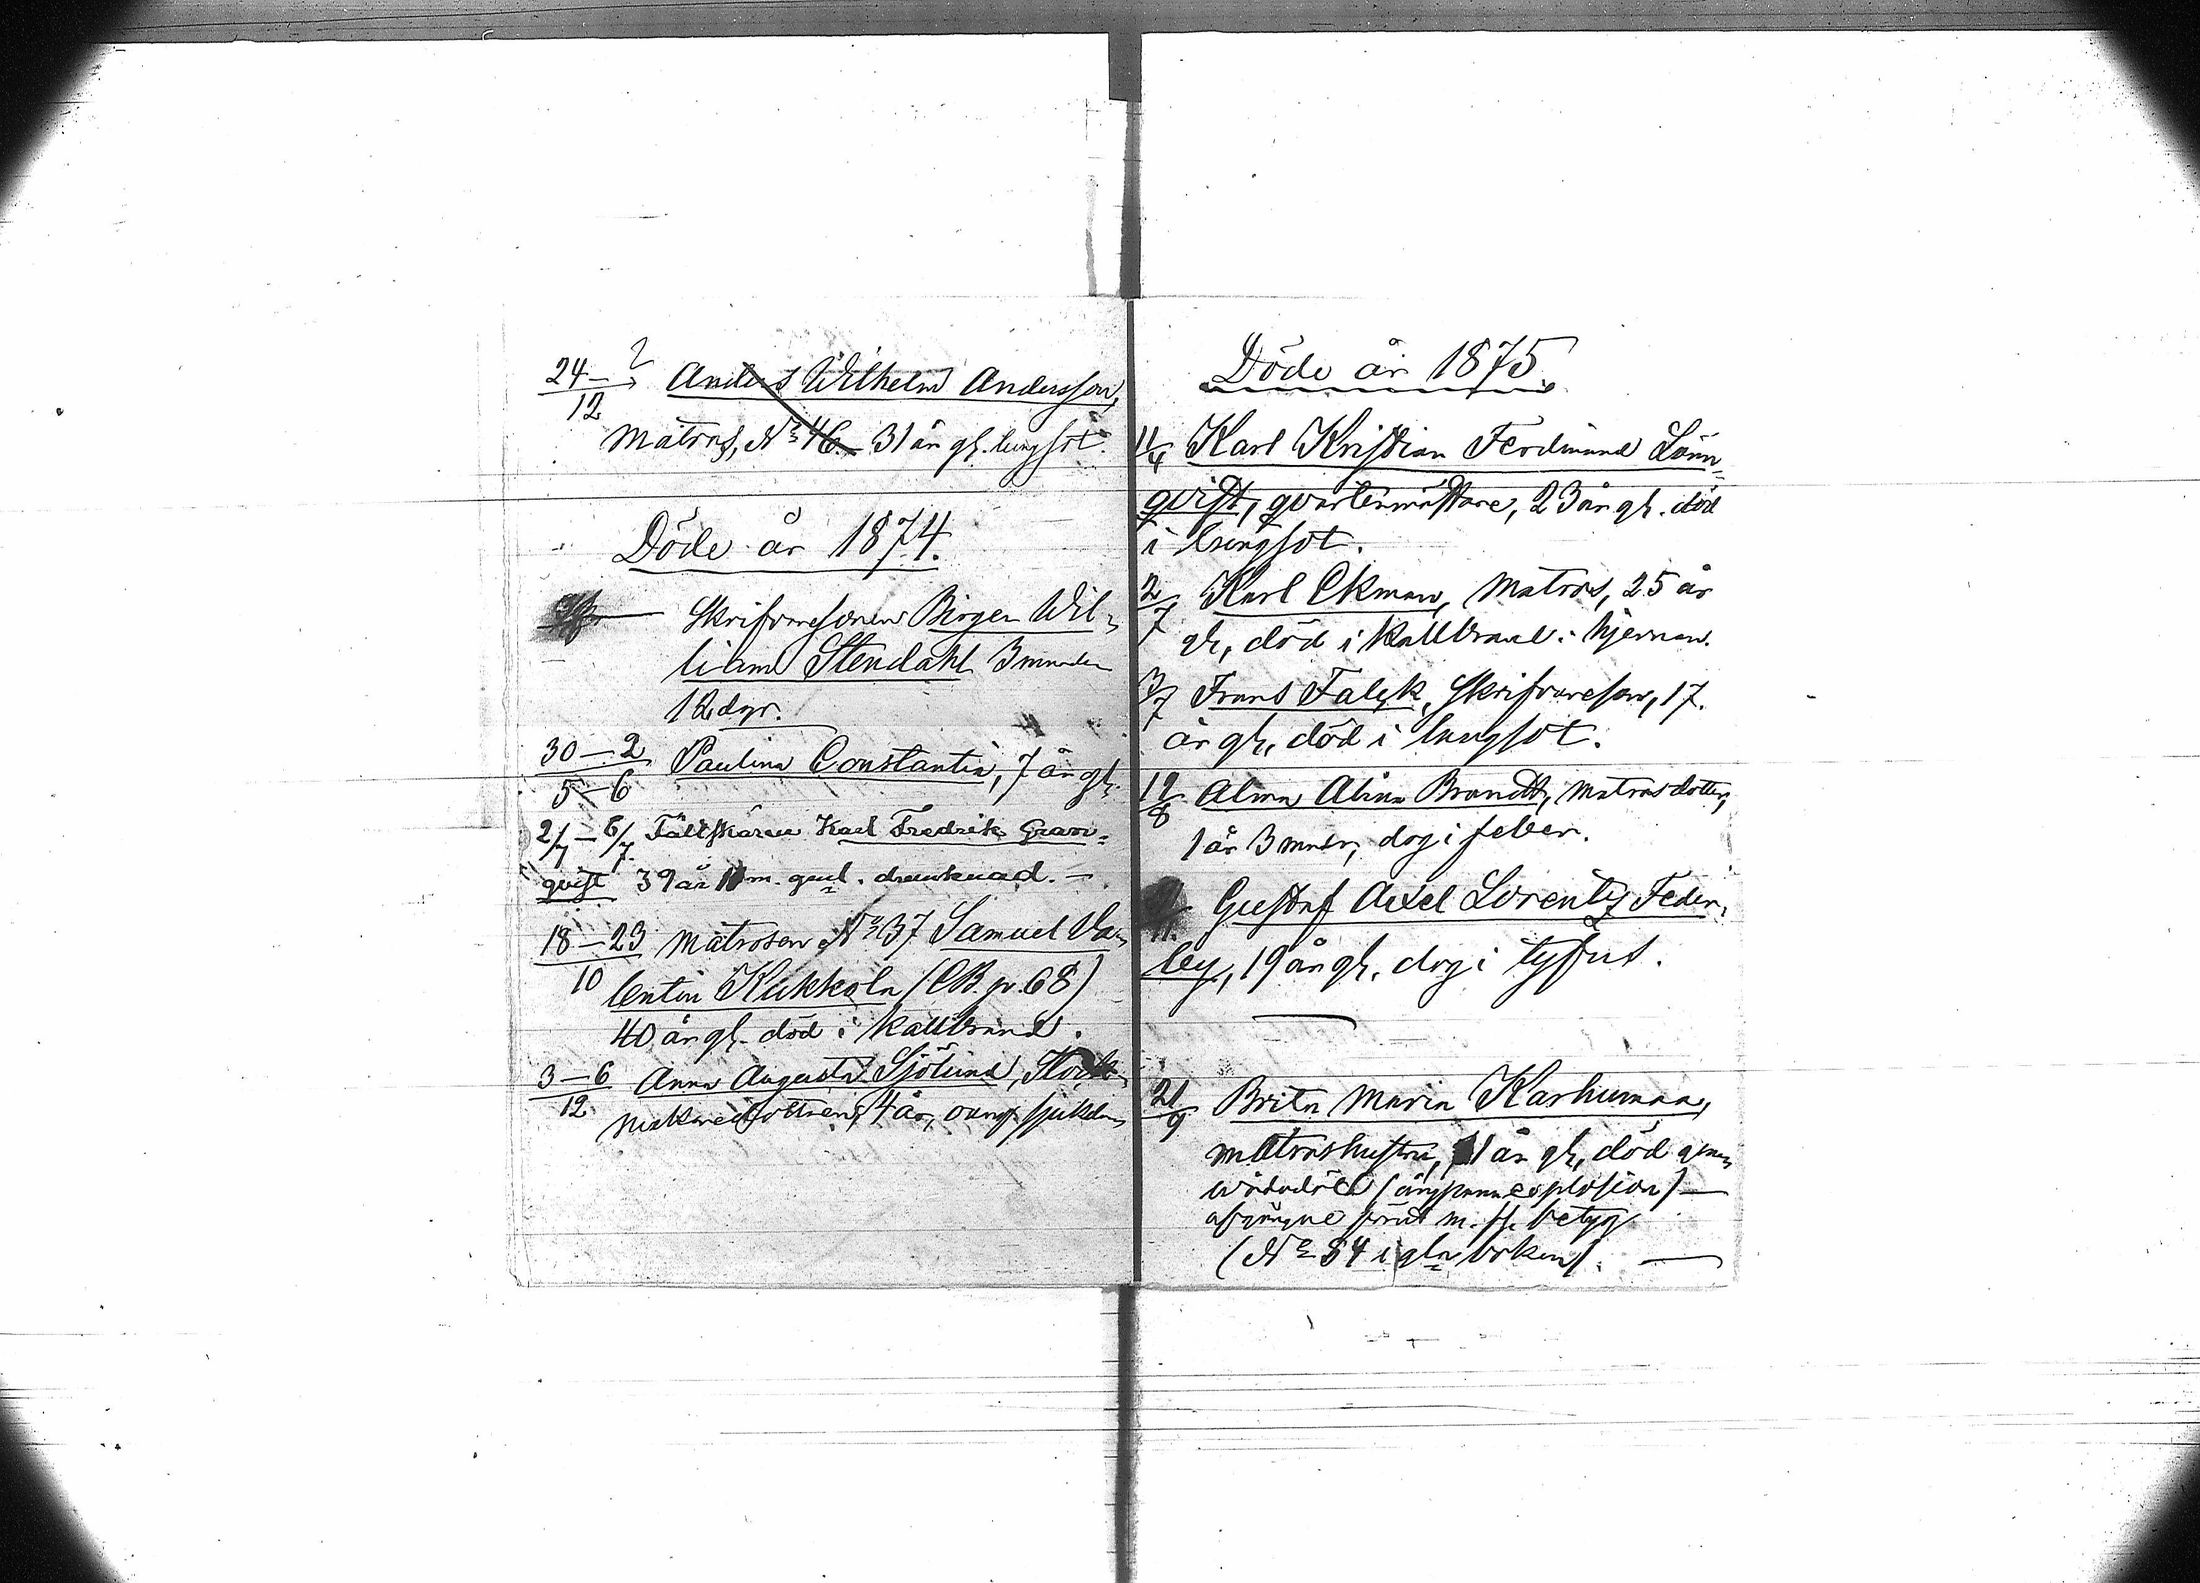 24 – ?
12
Anders Wilhelm Andersson,
Matros, No 46. 31 år gl. lungsot.
Döde år 1874.
Skrifvaresonen Birger Wil-
liam Stendahl 3 månader
12 dgr.
30 – 2
5 – 6
Paulina Constantia, 7 år gl.
2/7 – 6/7 Fältskären Karl Fredrik Gran=
qvist 39 år 11 m. gml. drunknad. –
18 – 23
10
Matrosen No 37 Samuel Va-
lentin Kukkola (CB. p. 68)
40 år gl. död i kallbrand.
3 – 6
12
Anna Augusta Sjölund, Stock-
makaredottren, 4 år, sjukdom
Döde år 1875.
11/4 Karl Kristian Ferdinand Lönn=
qvist, qvartermästare, 23 år gl. död
i lungsot.
2/7 Karl Ekman, Matros, 25 år
gl, död i kallbrand i hjernan.
3/7 Frans Falck, Skrifvareson, 17.
år gl, död i lungsot.
12/8 Alma Alina Brandt, matrosdotter,
1 år 3 mndr, dog i feber.
Gustaf Axel Lorentz Feder-
ley, 19 år gl. dog i tyfus.
21/9 Brita Maria Karhumaa,
matroshustru, år gl, död genom
wådadöd (ångpanneexplosion) –
afgången förut m. fl. betyg
(No 54 i gla boken). –